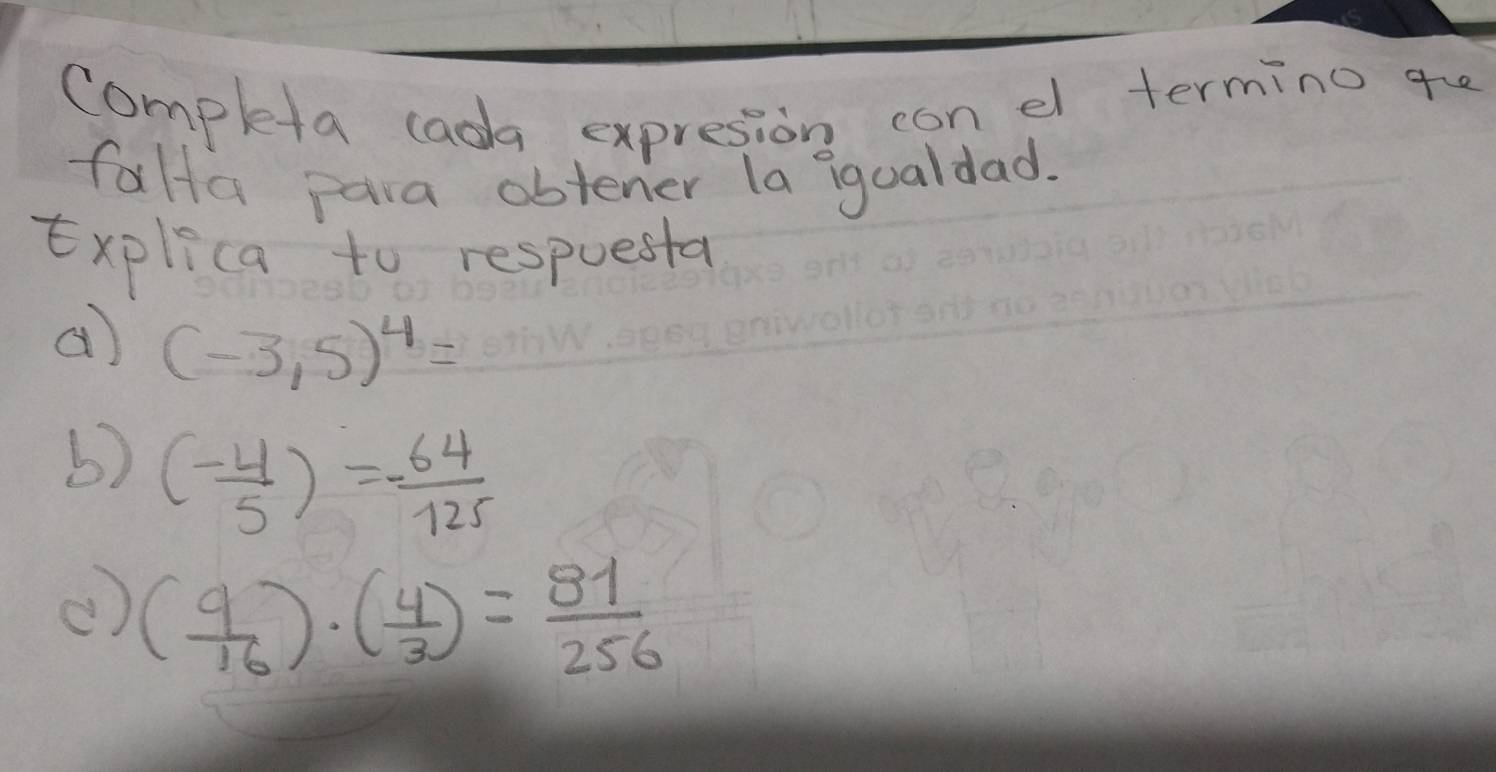 Completa cada expresión con el termino que
falta para obtener la igualdad.
Explica tu respuesta
a) (-3,5)⁴=
b) (-4/5) = -64/125
c) (9/16)·(4/3) = 81/256